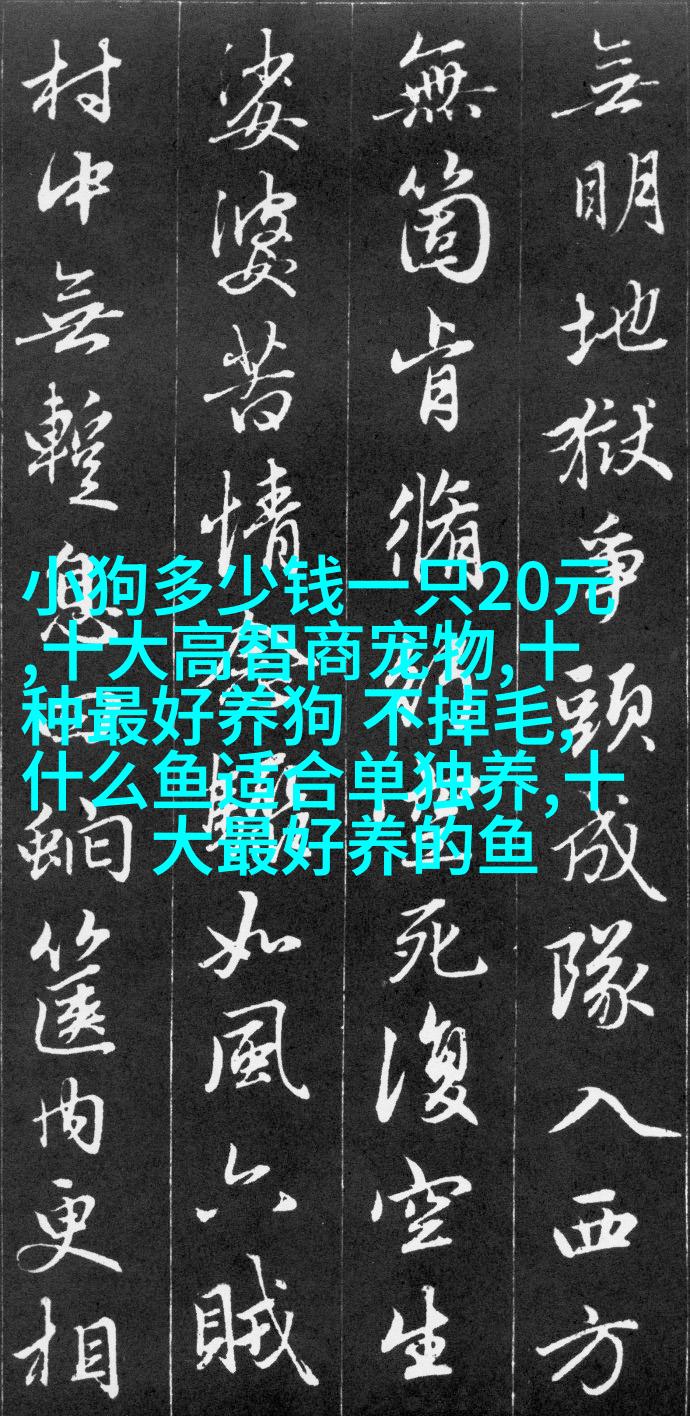 無明地獄爭頭成隊入西方
無箇肯脩空死復空生
娑婆苦情如風六賊
村中無蹔息四篋内更相
小狗多少钱一只20元
,十大高智商宠物,十
种最好养狗 不掉毛,
什么鱼适合单独养,十
大最好养的鱼